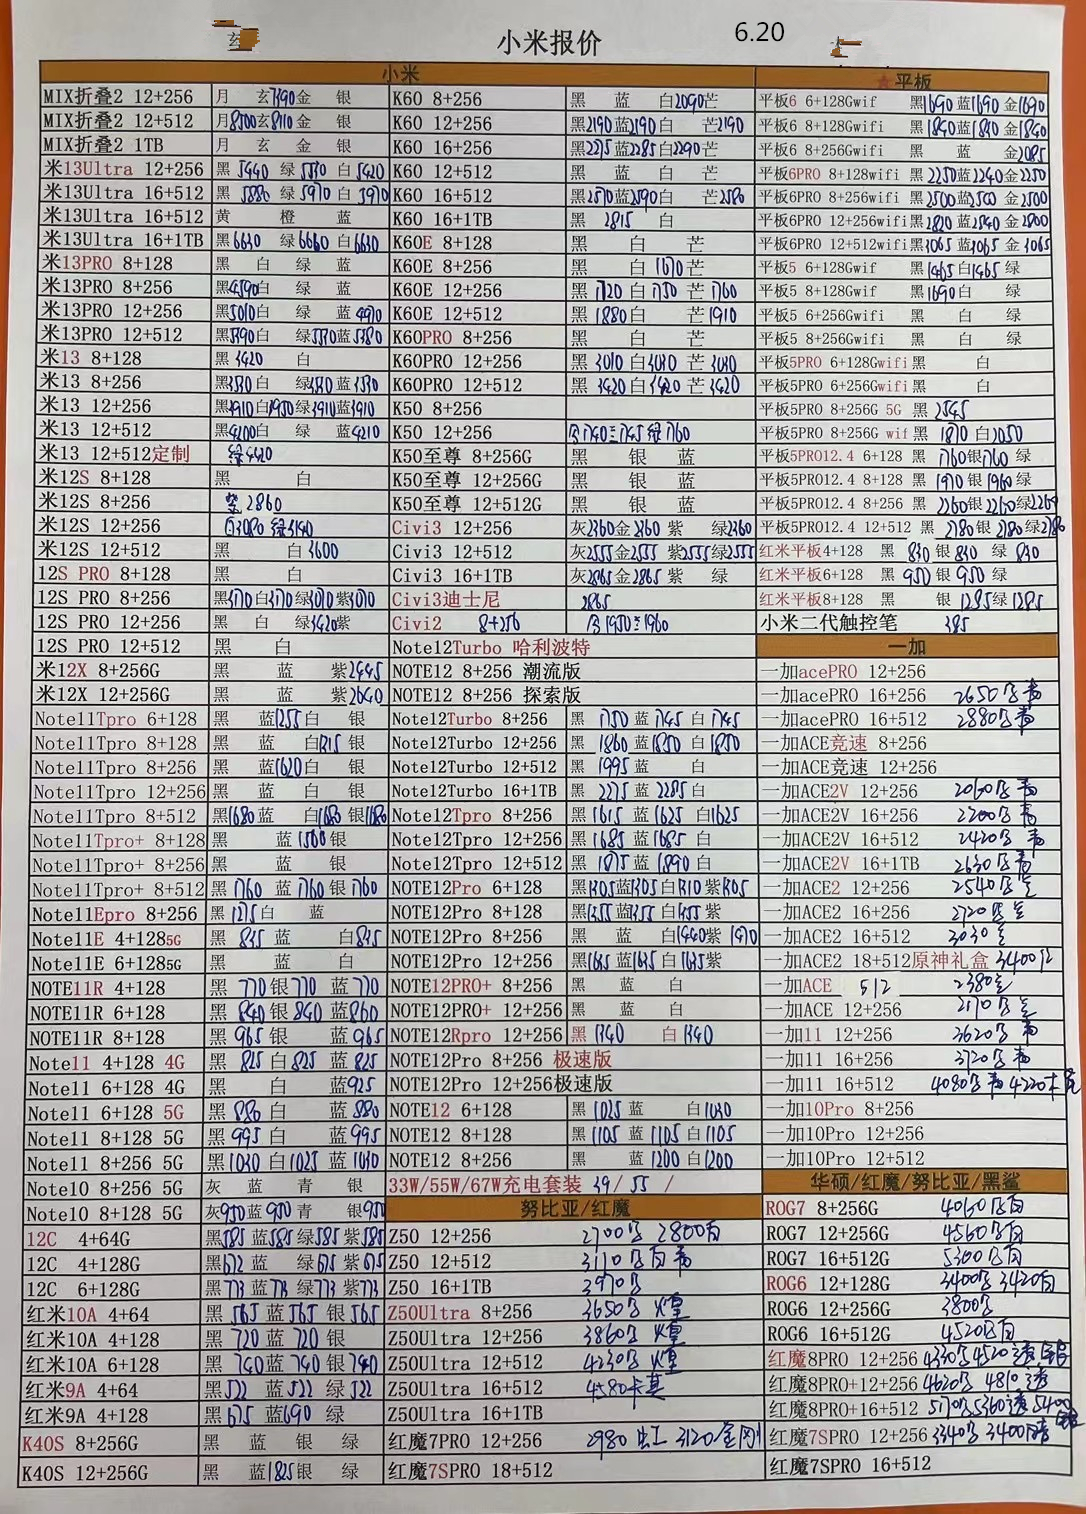 6.20
小米报价
小米
MIX折叠2 12+256 月 玄7390金 银
MIX折叠2 12+512 月8500玄8110 金 银
MIX折叠2 1TB 月 玄 金 银
米13Ultra 12+256 黑 5440 绿 5570 白 5420
米13Ultra 16+512 黑 5880 绿 5970 白 5970
米13Ultra 16+512 黄 橙 蓝
米13Ultra 16+1TB 黑 6630 绿 6660 白 6630
米13PRO 8+128 黑 白 绿 蓝
米13PRO 8+256 黑4590白 绿 蓝
米13PRO 12+256 黑5010白 绿 蓝 4970
米13PRO 12+512 黑5390白 绿5370蓝5380
米13 8+128 黑 3420 白
米13 8+256 黑3580白 绿3580蓝3530
米13 12+256 黑3910白3950绿3910蓝3910
米13 12+512 黑4200白 绿 蓝4210
米13 12+512定制 绿4420
米12S 8+128 黑 白
米12S 8+256 2860
米12S 12+256 白3080 绿3140
米12S 12+512 黑 白3600
12S PRO 8+128 黑 白
12S PRO 8+256 黑3170白3170绿3010紫3010
12S PRO 12+256 黑 白 绿3420紫
12S PRO 12+512 黑 白
米12X 8+256G 黑 蓝 紫2445
米12X 12+256G 黑 蓝 紫2640
Note11Tpro 6+128 黑 蓝1255白 银
Note11Tpro 8+128 黑 蓝 白1515 银
Note11Tpro 8+256 黑 蓝1620白 银
Note11Tpro 12+256 黑 蓝 白 银
Note11Tpro 8+512 黑1680蓝 白1680 银1680
Note11Tpro+ 8+128 黑 蓝1500银
Note11Tpro+ 8+256 黑 蓝 银
Note11Tpro+ 8+512 黑 1760 蓝 1760 银 1760
Note11Epro 8+256 黑 1275白 蓝
Note11E 4+1285G 黑 835 蓝 白835
Note11E 6+1285G 黑 蓝 白
NOTE11R 4+128 黑 770 银 770 蓝 770
NOTE11R 6+128 黑 840银 840 蓝860
NOTE11R 8+128 黑 965 银 蓝 965
Note11 4+128 4G 黑 825 白825 蓝 825
Note11 6+128 4G 黑 白 蓝925
Note11 6+128 5G 黑 880 白 蓝 880
Note11 8+128 5G 黑 995 白 蓝995
Note11 8+256 5G 黑 1030 白1025 蓝 1030
Note10 8+256 5G 灰 蓝 青 银
Note10 8+128 5G 灰950蓝950青 银950
12C 4+64G 黑585 蓝585 绿585 紫585
12C 4+128G 黑672 蓝 绿675 紫675
12C 6+128G 黑773 蓝773 绿773 紫773
红米10A 4+64 黑 565 蓝565 银565
红米10A 4+128 黑 720 蓝 720 银
红米10A 6+128 黑 740蓝 740 银 740
红米9A 4+64 黑522 蓝 522 绿 522
红米9A 4+128 黑 675 蓝690 绿
K40S 8+256G 黑 蓝 银 绿
K40S 12+256G 黑 蓝1825银 绿
K60 8+256 黑 蓝 白2090芒
K60 12+256 黑2190蓝2190白 芒2190
K60 16+256 黑2275蓝2285白2290芒
K60 12+512 黑 蓝 白 芒
K60 16+512 黑2570蓝2590白 芒2580
K60 16+1TB 黑 2815 白
K60E 8+128 黑 白 芒
K60E 8+256 黑 白 1670芒
K60E 12+256 黑 1720 白 1750 芒 1760
K60E 12+512 黑 1880白 芒1910
K60PRO 8+256 黑 白 芒
K60PRO 12+256 黑 3010 白3030 芒 3030
K60PRO 12+512 黑 3420 白3420 芒3420
K50 8+256
K50 12+256 1740 1745 绿 1760
K50至尊 8+256G 黑 银 蓝
K50至尊 12+256G 黑 银 蓝
K50至尊 12+512G 黑 银 蓝
Civi3 12+256 灰2360金2360 紫 绿2360
Civi3 12+512 灰2555金2555 紫2555绿2555
Civi3 16+1TB 灰2865金2865 紫 绿
Civi3迪士尼 2865
Civi2 8+256 1950 1960
Note12Turbo 哈利波特
NOTE12 8+256 潮流版
NOTE12 8+256 探索版
Note12Turbo 8+256 黑 1750 蓝 1745 白 1745
Note12Turbo 12+256 黑 1860 蓝1850 白 1850
Note12Turbo 12+512 黑 1995 蓝 白
Note12Turbo 16+1TB 黑 2275 蓝 2285 白
Note12Tpro 8+256 黑 1615 蓝 1625 白1625
Note12Tpro 12+256 黑 1685 蓝1685 白
Note12Tpro 12+512 黑 1875 蓝1890 白
NOTE12Pro 6+128 黑1305蓝1305白1310紫1305
NOTE12Pro 8+128 黑1355蓝1355 白1355紫
NOTE12Pro 8+256 黑 蓝 白1440紫1470
NOTE12Pro 12+256 黑1635蓝1635白1635紫
NOTE12PRO+ 8+256 黑 蓝 白
NOTE12PRO+ 12+256 黑 蓝 白
NOTE12Rpro 12+256 黑 1340 白1340
NOTE12Pro 8+256 极速版
NOTE12Pro 12+256极速版
NOTE12 6+128 黑 1025 蓝 白1030
NOTE12 8+128 黑 1105 蓝 1105 白1105
NOTE12 8+256 黑 蓝 1200 白1200
33W/55W/67W充电套装 39/ 55 /
努比亚/红魔
Z50 12+256 2700 2800白
Z50 12+512 3110
Z50 16+1TB 3970
Z50Ultra 8+256 3650
Z50Ultra 12+256 3860
Z50Ultra 12+512 4230
Z50Ultra 16+512 4580
Z50Ultra 16+1TB
红魔7PRO 12+256 2980 3120/金刚
红魔7SPRO 18+512
★平板
平板6 6+128Gwif 黑1690 蓝1690 金1690
平板6 8+128Gwifi 黑1840蓝1840 金1840
平板6 8+256Gwifi 黑 蓝 金2085
平板6PRO 8+128wifi 黑 2250蓝2240金2250
平板6PRO 8+256wifi 黑2500蓝2500 金2500
平板6PRO 12+256wifi 黑2820 蓝2840 金2800
平板6PRO 12+512wifi 黑3065 蓝3065 金 3065
平板5 6+128Gwif 黑1465白1465 绿
平板5 8+128Gwif 黑1690白 绿
平板5 6+256Gwifi 黑 白 绿
平板5 8+256Gwifi 黑 白 绿
平板5PRO 6+128Gwifi 黑 白
平板5PRO 6+256Gwifi 黑 白
平板5PRO 8+256G 5G 黑 2545
平板5PRO 8+256G wif 黑 1870 白2050
平板5PRO12.4 6+128 黑 1760银1760 绿
平板5PRO12.4 8+128 黑 1970 银 1960绿
平板5PRO12.4 8+256 黑 2260银2260绿2260
平板5PRO12.4 12+512 黑 2780银 2780绿2780
红米平板4+128 黑 830 银830 绿 830
红米平板6+128 黑 950 银 950 绿
红米平板8+128 黑 银 1285绿1285
小米二代触控笔 385
一加
一加acePRO 12+256
一加acePRO 16+256 2650
一加acePRO 16+512 2880
一加ACE竞速 8+256
一加ACE竞速 12+256
一加ACE2V 12+256 2060
一加ACE2V 16+256 2200
一加ACE2V 16+512 2420
一加ACE2V 16+1TB 2630
一加ACE2 12+256 2540
一加ACE2 16+256 2720
一加ACE2 16+512 3030
一加ACE2 18+512原神礼盒 3400
一加ACE 512 2380
一加ACE 12+256 2170
一加11 12+256 3620
一加11 16+256 3720
一加11 16+512 4080 4220
一加10Pro 8+256
一加10Pro 12+256
一加10Pro 12+512
华硕/红魔/努比亚/黑鲨
ROG7 8+256G 4060 白
ROG7 12+256G 4560 白
ROG7 16+512G 5300 白
ROG6 12+128G 3400 3420白
ROG6 12+256G 3800
ROG6 16+512G 4520 白
红魔8PRO 12+256 4330 4520透
红魔8PRO+12+256 4620 4810 透
红魔8PRO+16+512 5170 5360透 5400
红魔7SPRO 12+256 3340 3400
红魔7SPRO 16+512